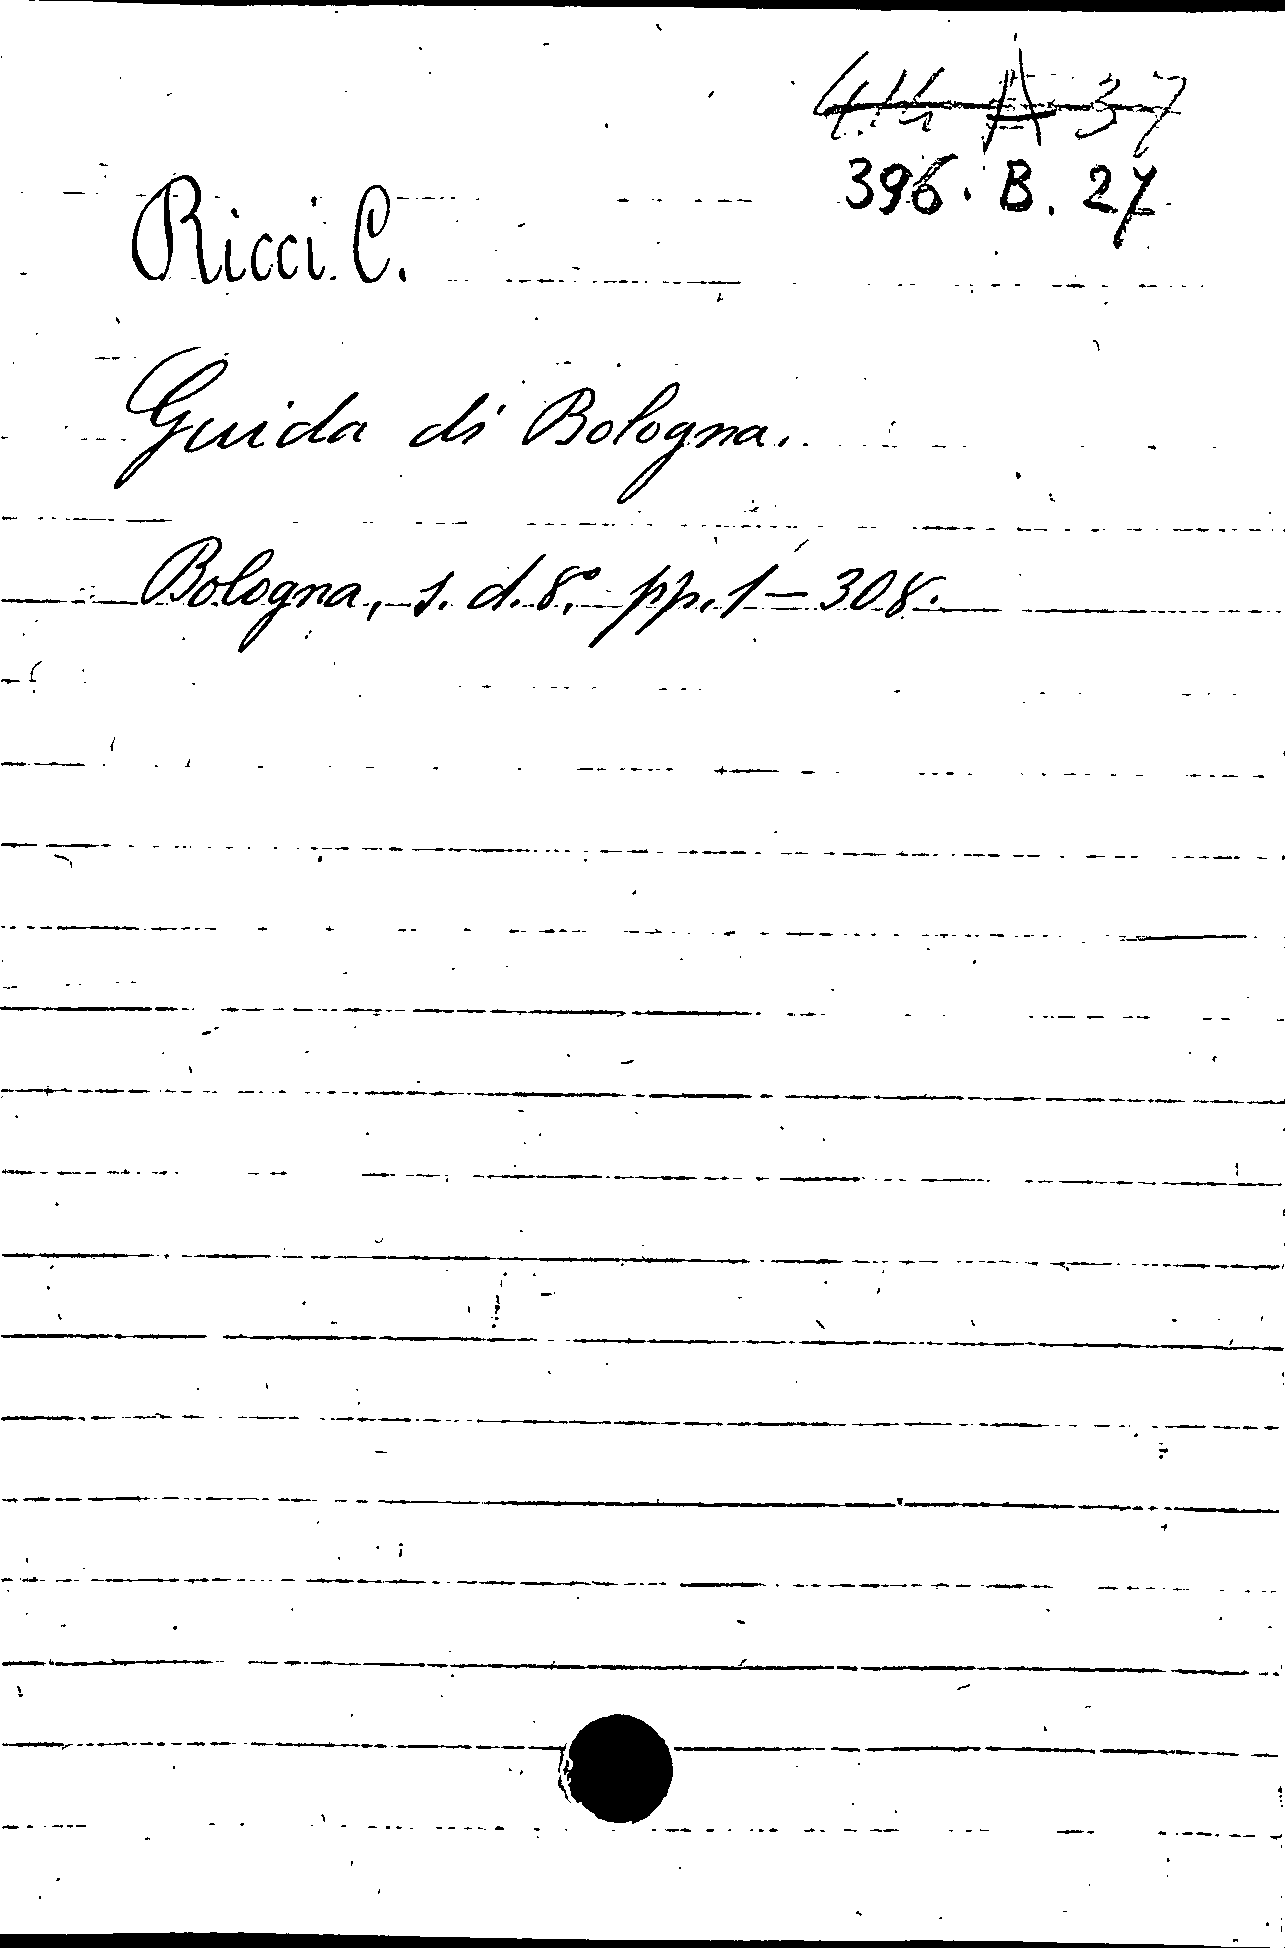 414 A 37
396. B. 27
Ricci C.
Guida di Bologna.
Bologna, s. d. 8.° pp. 1 – 308.